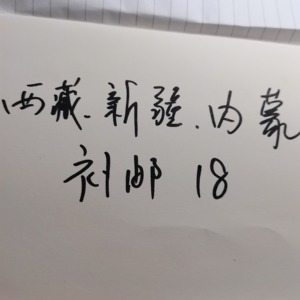 西藏、新疆、内蒙
补邮 18